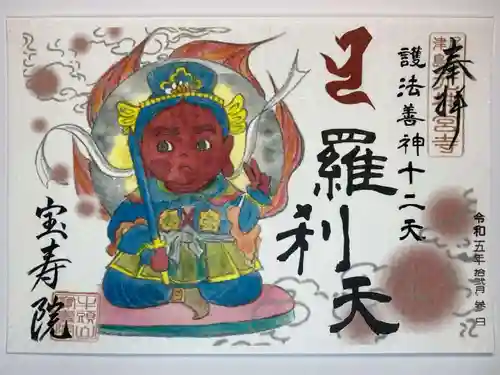 奉拝
護法善神十二天
羅刹天
令和五年拾弐月参日
宝寿院